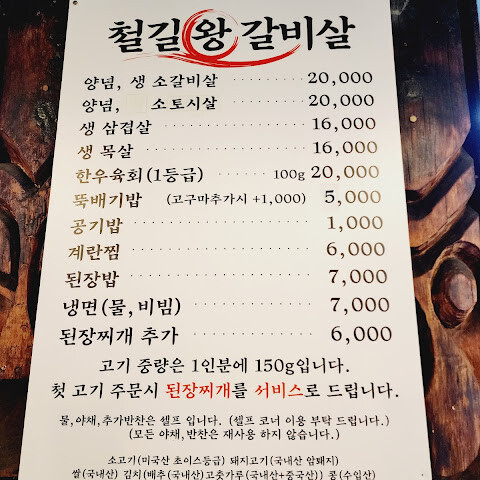 철길왕갈비살
양념, 생 소갈비살 ········· 20,000
양념, 소토시살 ········· 20,000
생 삼겹살 ········· 16,000
생 목살 ········· 16,000
한우육회(1등급) ······· 100g 20,000
뚝배기밥 (고구마추가시 +1,000) 5,000
공기밥 ········· 1,000
계란찜 ········· 6,000
된장밥 ········· 7,000
냉면(물,비빔) ········· 7,000
된장찌개 추가 ········· 6,000
고기 중량은 1인분에 150g입니다.
첫 고기 주문시 된장찌개를 서비스로 드립니다.
물,야채,추가반찬은 셀프 입니다. (셀프 코너 이용 부탁 드립니다.)
(모든 야채,반찬은 재사용 하지 않습니다.)
소고기(미국산 초이스등급) 돼지고기(국내산 암퇘지)
쌀(국내산) 김치(배추(국내산)고춧가루(국내산+중국산)) 콩(수입산)